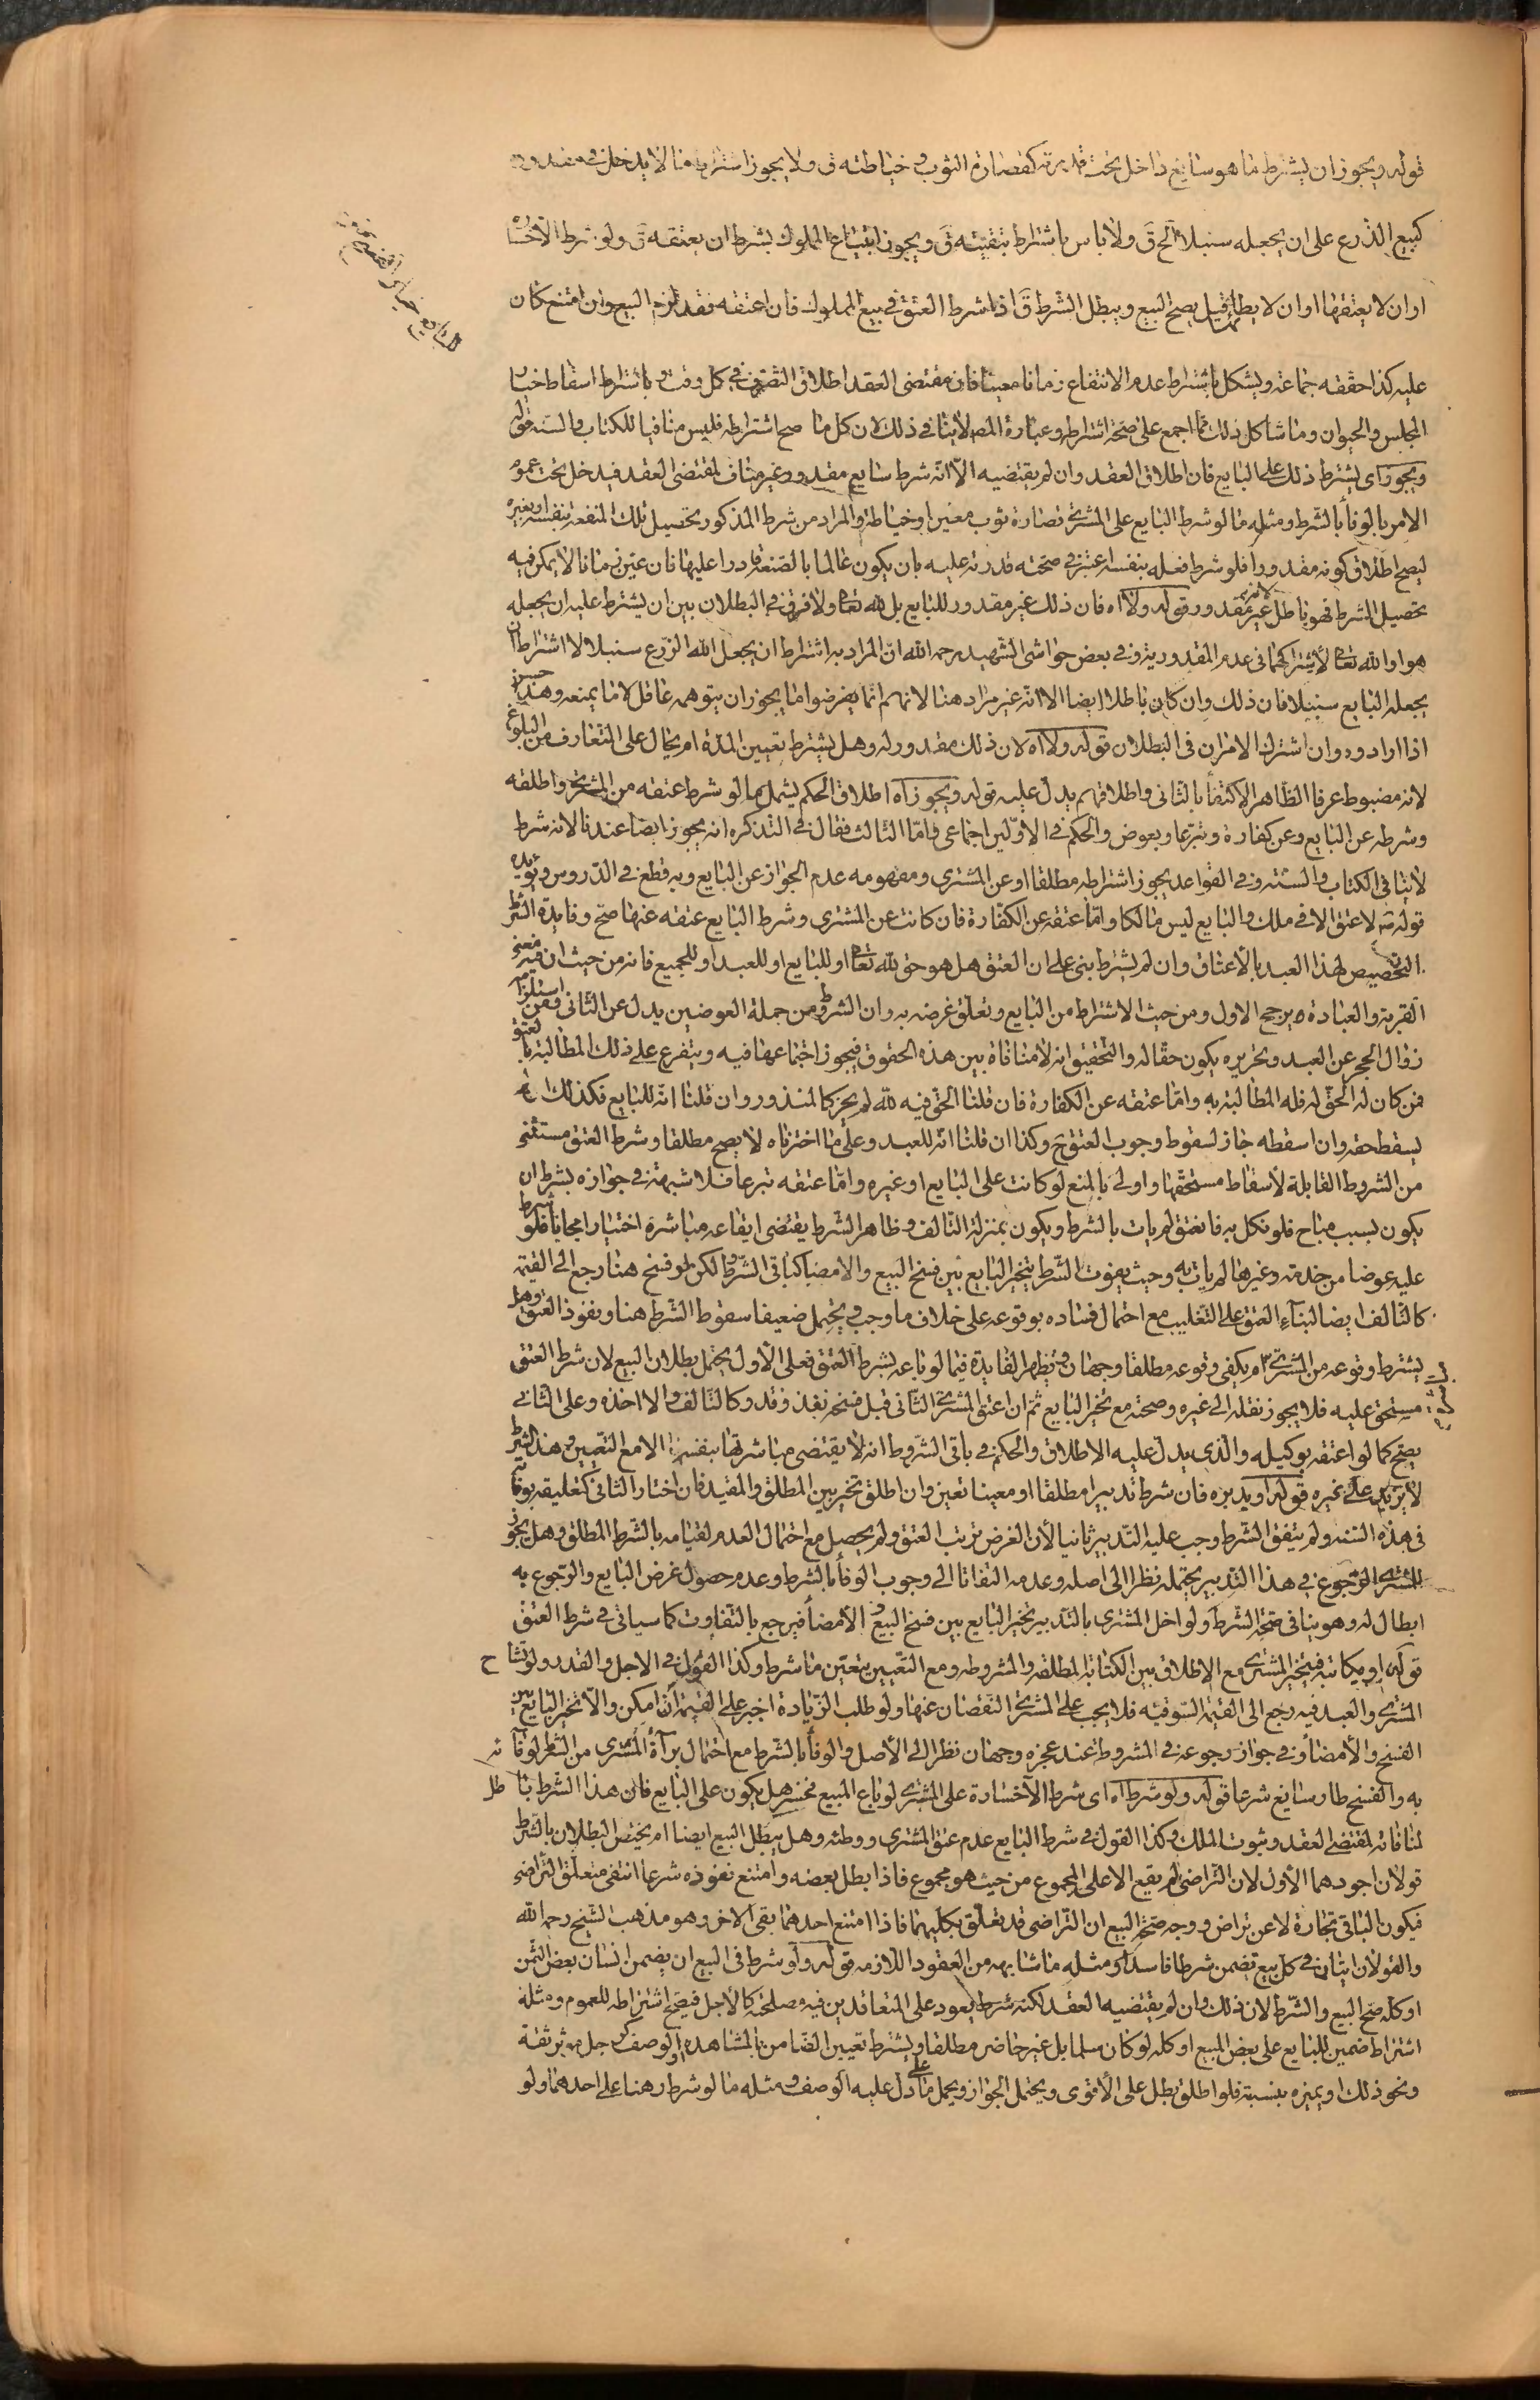 قوله ويجوز ان يشترط ما هو سايغ داخل تحت قدرته كقصارة الثوب و خياطته ق ولا يجوز اشتراط ما لا يدخل في مقدوره
كبيع الذرع على ان يجعله سنبلا الخ ق ولا باس باشتراط تبقيته ق ويجوز ابتياع المملوك بشرط ان يعتقه ق ولو شرط الا خسارة
او ان لا يعتقها او ان لا يطأها قيل يصح البيع ويبطل الشرط ق اذا شرط العتق في بيع المملوك فان اعتقه فقد لزم البيع وان امتنع كان
للبايع خيار الفسخ
عليه كذا حققه جماعة ويشكل باشتراط عدم الانتفاع زمانا معينا فان مقتضى العقد اطلاق التصرف في كل وقت وباشتراط اسقاط خيار
المجلس والحيوان وما شاكل ذلك مما اجمع على صحة اشتراطه وعبارة المص لا ينافي ذلك لان كل ما صح اشتراطه فليس منافيا للكتاب والسنة قوله
ويجوز اى يشترط ذلك على البايع فان اطلاق العقد وان لم يقتضيه الا انه شرط سايع مقدور غير مناف لمقتضى العقد فيدخل تحت عموم
الامر بالوفأ بالشرط ومثله ما لو شرط البايع على المشترى قصارة ثوب معين او خياطة والمراد من شرط المذكور تحصيل تلك المنفعة بنفسه او بغيره
ليصح اطلاق كونه مقدورا فلو شرط فعله بنفسه اعتبر في صحته قدرته عليه بان يكون عالما بالصنعة قادرا عليها فان عين زمانا لا يمكن فيه
تحصيل الشرط فهو باطل لانه غير مقدور قوله ولا اه فان ذلك غير مقدور للبايع بل لله تعا ولا فرق في البطلان بين ان يشترط عليه ان يجعله
هو او الله تعا لاشتراكهما في عدم المقدورية وفي بعض حواشى الشهيد رحمه الله ان المراد به اشتراط ان يجعل الله الزرع سنبلا لا اشتراط ان
يجعله البايع سنبلا فان ذلك وان كان باطلا ايضا الا انه غير مراد هنا لانهم انما يفرضوا ما يجوز ان يتوهمه عاقل لا ما يمنعه وهذا حسن
اذا ارادوه وان اشترك الامران في البطلان قوله ولا اه لان ذلك مقدور له وهل يشترط تعيين المدة ام يحال على التعارف من البلوغ
لانه مضبوط عرفا الظاهر الاكتفأ بالثانى واطلاقهم يدل عليه قوله ويجوز اه اطلاق الحكم يشمل ما لو شرط عتقه من المشترى واطلقه
وشرطه عن البايع وعن كفارة وتبرعا وبعوض والحكم في الاولين اجماعى واما الثالث فقال في التذكره انه يجوز ايضا عندنا لانه شرط
لا ينافي الكتاب والسنة وفي القواعد يجوز اشتراطه مطلقا او عن المشترى ومفهومه عدم الجواز عن البايع وبه قطع في الدروس ويؤيده
قوله لا عتق الا في ملك والبايع ليس مالكا واما عتقه عن الكفارة فان كانت عن المشترى وشرط البايع عتقه عنها صح وفايدة الشرط
التخصيص لهذا العبد بالاعتاق وان لم يشترط بنى على ان العتق هل هو حق لله تعا او للبايع او للعبد او للجميع فانه من حيث ان فيه معنى
القربة والعبادة يرجح الاول ومن حيث الاشتراط من البايع وتعلق غرضه به وان الشروط من جملة العوضين يدل عن الثانى ومن استلزامه
زوال الحجر عن العبد وتحريره يكون حقا له والتحقيق انه لا منافاة بين هذه الحقوق فيجوز اجتماعها فيه ويتفرع على ذلك المطالبة بالعتق
فمن كان له الحق له فله المطالبة به واما عتقه عن الكفارة فان قلنا الحق فيه لله لم يجز كالمنذور وان قلنا انه للبايع فكذلك ان لم
يسقط حقه وان اسقطه جاز لسقوط وجوب العتق ح وكذا ان قلنا انه للعبد وعلى ما اخترناه لا يصح مطلقا وشرط العتق مستثنى
من الشروط القابلة لاسقاط مستحقها واولى بالمنع لو كانت على البايع او غيره واما عتقه تبرعا فلا شبهة في جوازه بشرط ان
يكون بسبب مباح فلو نكل به فانعتق لم يات بالشرط ويكون بمنزلة التالف وظاهر الشرط يقتضى ايقاعه مباشرة اختيارا مجانا فلو شرط
عليه عوضا من خدمة وغيرها لم يات به وحيث يفوت الشرط يتخير البايع بين فسخ البيع والامضا كباقى الشروط لكن لو فسخ هنا رجع الى القيمة
كالتالف ايضا لبنآء العتق على التغليب مع احتمال فساده بوقوعه على خلاف ما وجب ويحتمل ضعيفا سقوط الشرط هنا ونفوذ العتق وهل
يشترط وقوعه من المشترى ام يكفى وقوعه مطلقا وجهان وتظهر الفايدة فيما لو باعه بشرط العتق فعلى الاول يحتمل بطلان البيع لان شرط العتق
مستحق عليه فلا يجوز نقله الى غيره وصحته مع تخير البايع ثم ان اعتق المشترى الثانى قبل فسخه نفذ وقدر كالتالف والا اخذه وعلى الثانى
يصح كما لو اعتقه بوكيله والذى يدل عليه الاطلاق والحكم في باقى الشروط انه لا يقتضى مباشرتها بنفسه الا مع التعيين وهذا الشرط
لا يزيد على غيره قوله او يدبره فان شرط تدبيرا مطلقا او معينا تعين وان اطلق تخير بين المطلق والمقيد فان اختار الثانى كتعليقه بوفاته
في هذه السنة ولم يتفق الشرط وجب عليه التدبير ثانيا لأن الغرض ترتب العتق ولم يحصل مع احتمال العدم لقيامه بالشرط المطلق وهل يجوز
للمشترى الرجوع في هذا التدبير يحتمله نظرا الى اصله وعدمه التفاتا الى وجوب الوفأ بالشرط وعدم حصول غرض البايع والرجوع به
ابطال له وهو ينافى صحة الشرط ولو اخل المشترى بالتدبير تخير البايع بين فسخ البيع و الأمضأ فيرجع بالتفاوت كما سياتى في شرط العتق
قوله او يكاتبه فيتخير المشترى مع الاطلاق بين الكتابة المطلقه والمشروطه ومع التعيين يتعين ما شرط وكذا القول في الاجل والقدر ولو تشاح
المشترى والعبد فيه رجع الى القيمة السوقيه فلا يجب على المشترى النقصان عنها ولو طلب الزيادة اجبر على القيمة ان امكن والا تخير البايع بين
الفسخ والأمضأ وفي جواز رجوعه في المشروطة عند عجزه وجهان نظرا الى الأصل والوفأ بالشرط مع احتمال برآءة المشترى من الشرط لوفائه
به والفسخ طار وسايغ شرعا قوله ولو شرط اه اى شرط الآخسارة على المشترى لو باع المبيع فخسر هل يكون على البايع فان هذا الشرط باطل
لمنافاته لمقتضى العقد وثبوت الملك وكذا القول في شرط البايع عدم عتق المشترى ووطئه وهل يبطل البيع ايضا ام يختص البطلان بالشرط
قولان اجودهما الأول لان التراضى لم يقع الا على المجموع من حيث هو مجموع فاذا بطل بعضه وامتنع نفوذه شرعا انتفى متعلق التراضى
فيكون الباقى تجارة لا عن تراض ووجه صحة البيع ان التراضى قد تعلق بكليهما فاذا امتنع احدهما بقى الاخر وهو مذهب الشيخ رحمه الله
والقولان اتيان في كل بيع تضمن شرطا فاسدا ومثله ما شابهه من العقود اللازمه قوله ولو شرط في البيع ان يضمن انسان بعض الثمن
او كله صح البيع والشرط لان ذلك وان لم يقتضيه العقد لكنه شرط يعود على المتعاقدين فيه مصلحة كالاجل فيصح اشتراطه للعموم ومثله
اشتراط ضمين للبايع على بعض المبيع او كله لو كان سلما بل غير حاضر مطلقا ويشترط تعيين الضامن بالمشاهده او الوصف كرجل موثر ثقة
ونحو ذلك او يميزه بنسبته فلو اطلق بطل على الأقوى ويحتمل الجواز ويحمل على ما دل عليه الوصف ومثله ما لو شرط رهنا على احدهما ولو